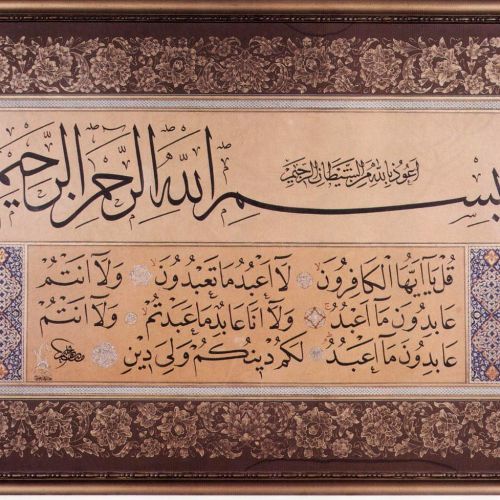 اعوذ بالله من الشيطان الرجيم
بسم الله الرحمن الرحيم
قُلْ يَا اَيُّهَا الْكَافِرُونَ لَا اَعْبُدُ مَا تَعْبُدُونَ وَلَا اَنْتُمْ
عَابِدُونَ مَا اَعْبُدُ وَلَا اَنَا عَابِدٌ مَا عَبَدْتُمْ وَلَا اَنْتُمْ
عَابِدُونَ مَا اَعْبُدُ لَكُمْ دِينُكُمْ وَلِىَ دِينِ